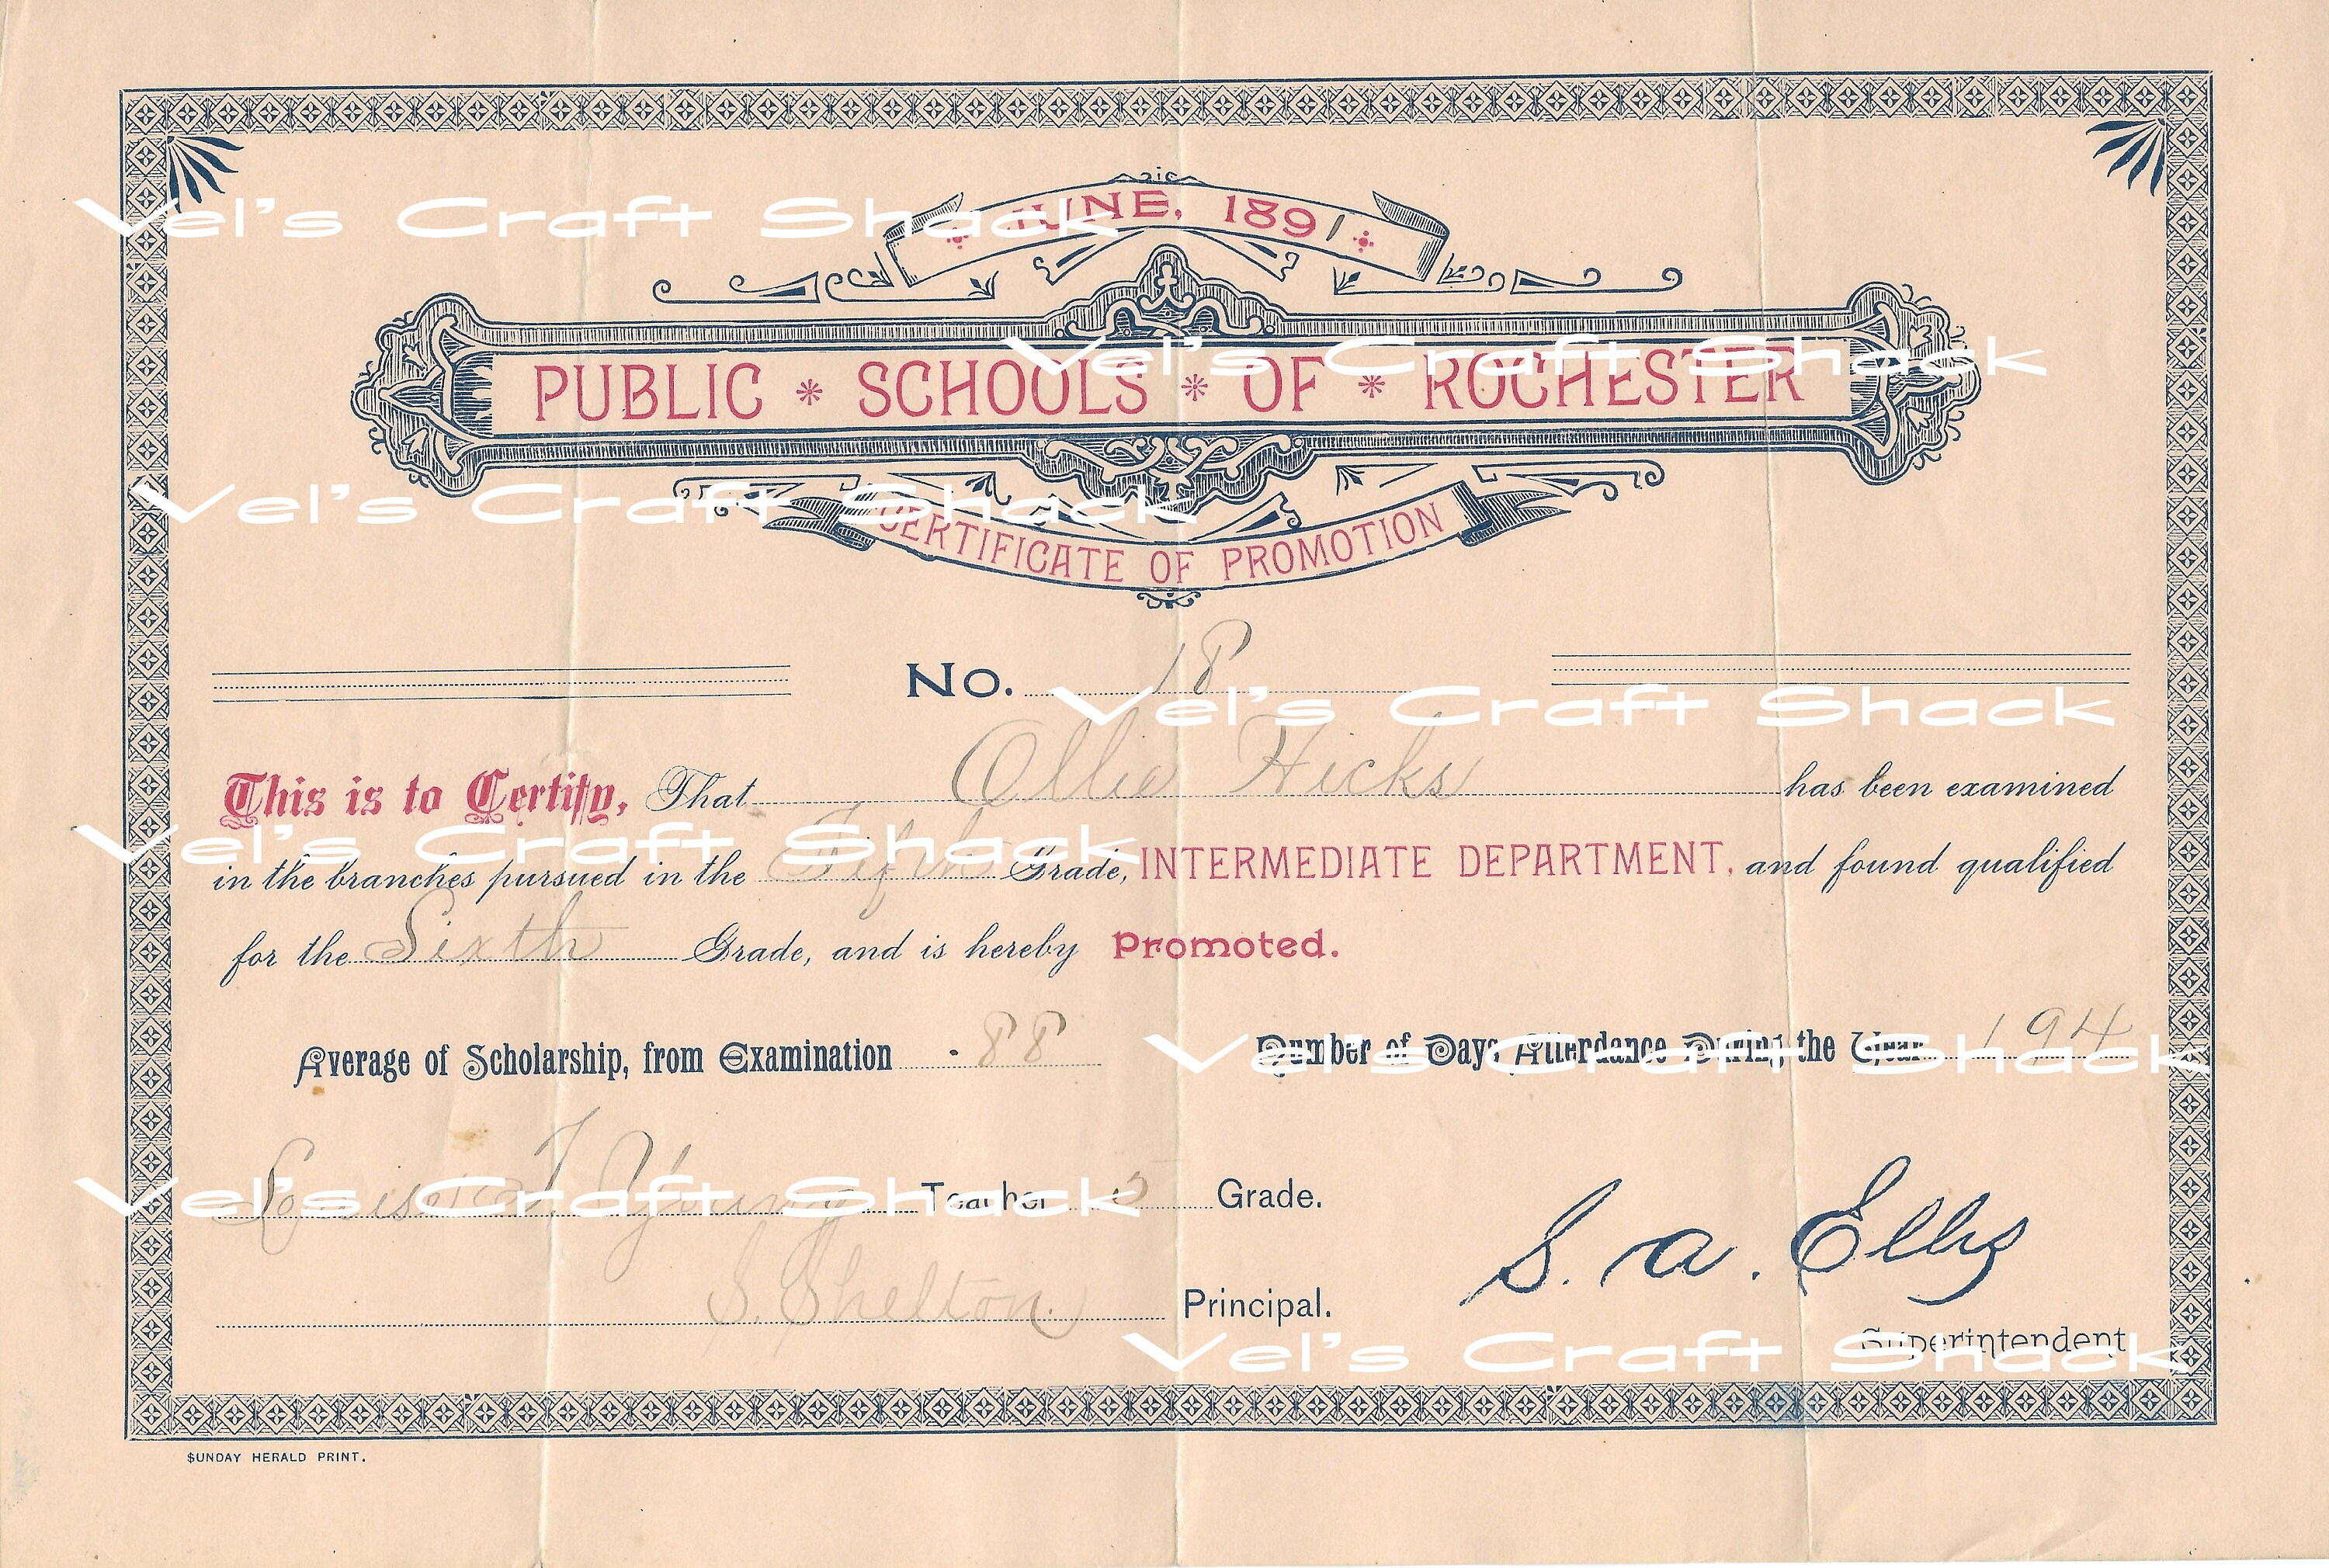 JUNE, 1891
Vel's Craft Shack
PUBLIC * SCHOOLS * OF * ROCHESTER
Vel's Craft Shack
Vel's Craft Shack
CERTIFICATE OF PROMOTION
No. 18
Vel's Craft Shack
This is to Certify, That Ollie Hicks has been examined
Vel's Craft Shack
in the branches pursued in the Fifth Grade, INTERMEDIATE DEPARTMENT, and found qualified
for the Sixth Grade, and is hereby Promoted.
Average of Scholarship, from Examination .88 Number of Days Attendance During the Year 194
Vel's Craft Shack
Louisa T. Young Teacher 5 Grade.
Vel's Craft Shack
S. A. Ellis
S. Shelton. Principal.
Superintendent
Vel's Craft Shack
SUNDAY HERALD PRINT.